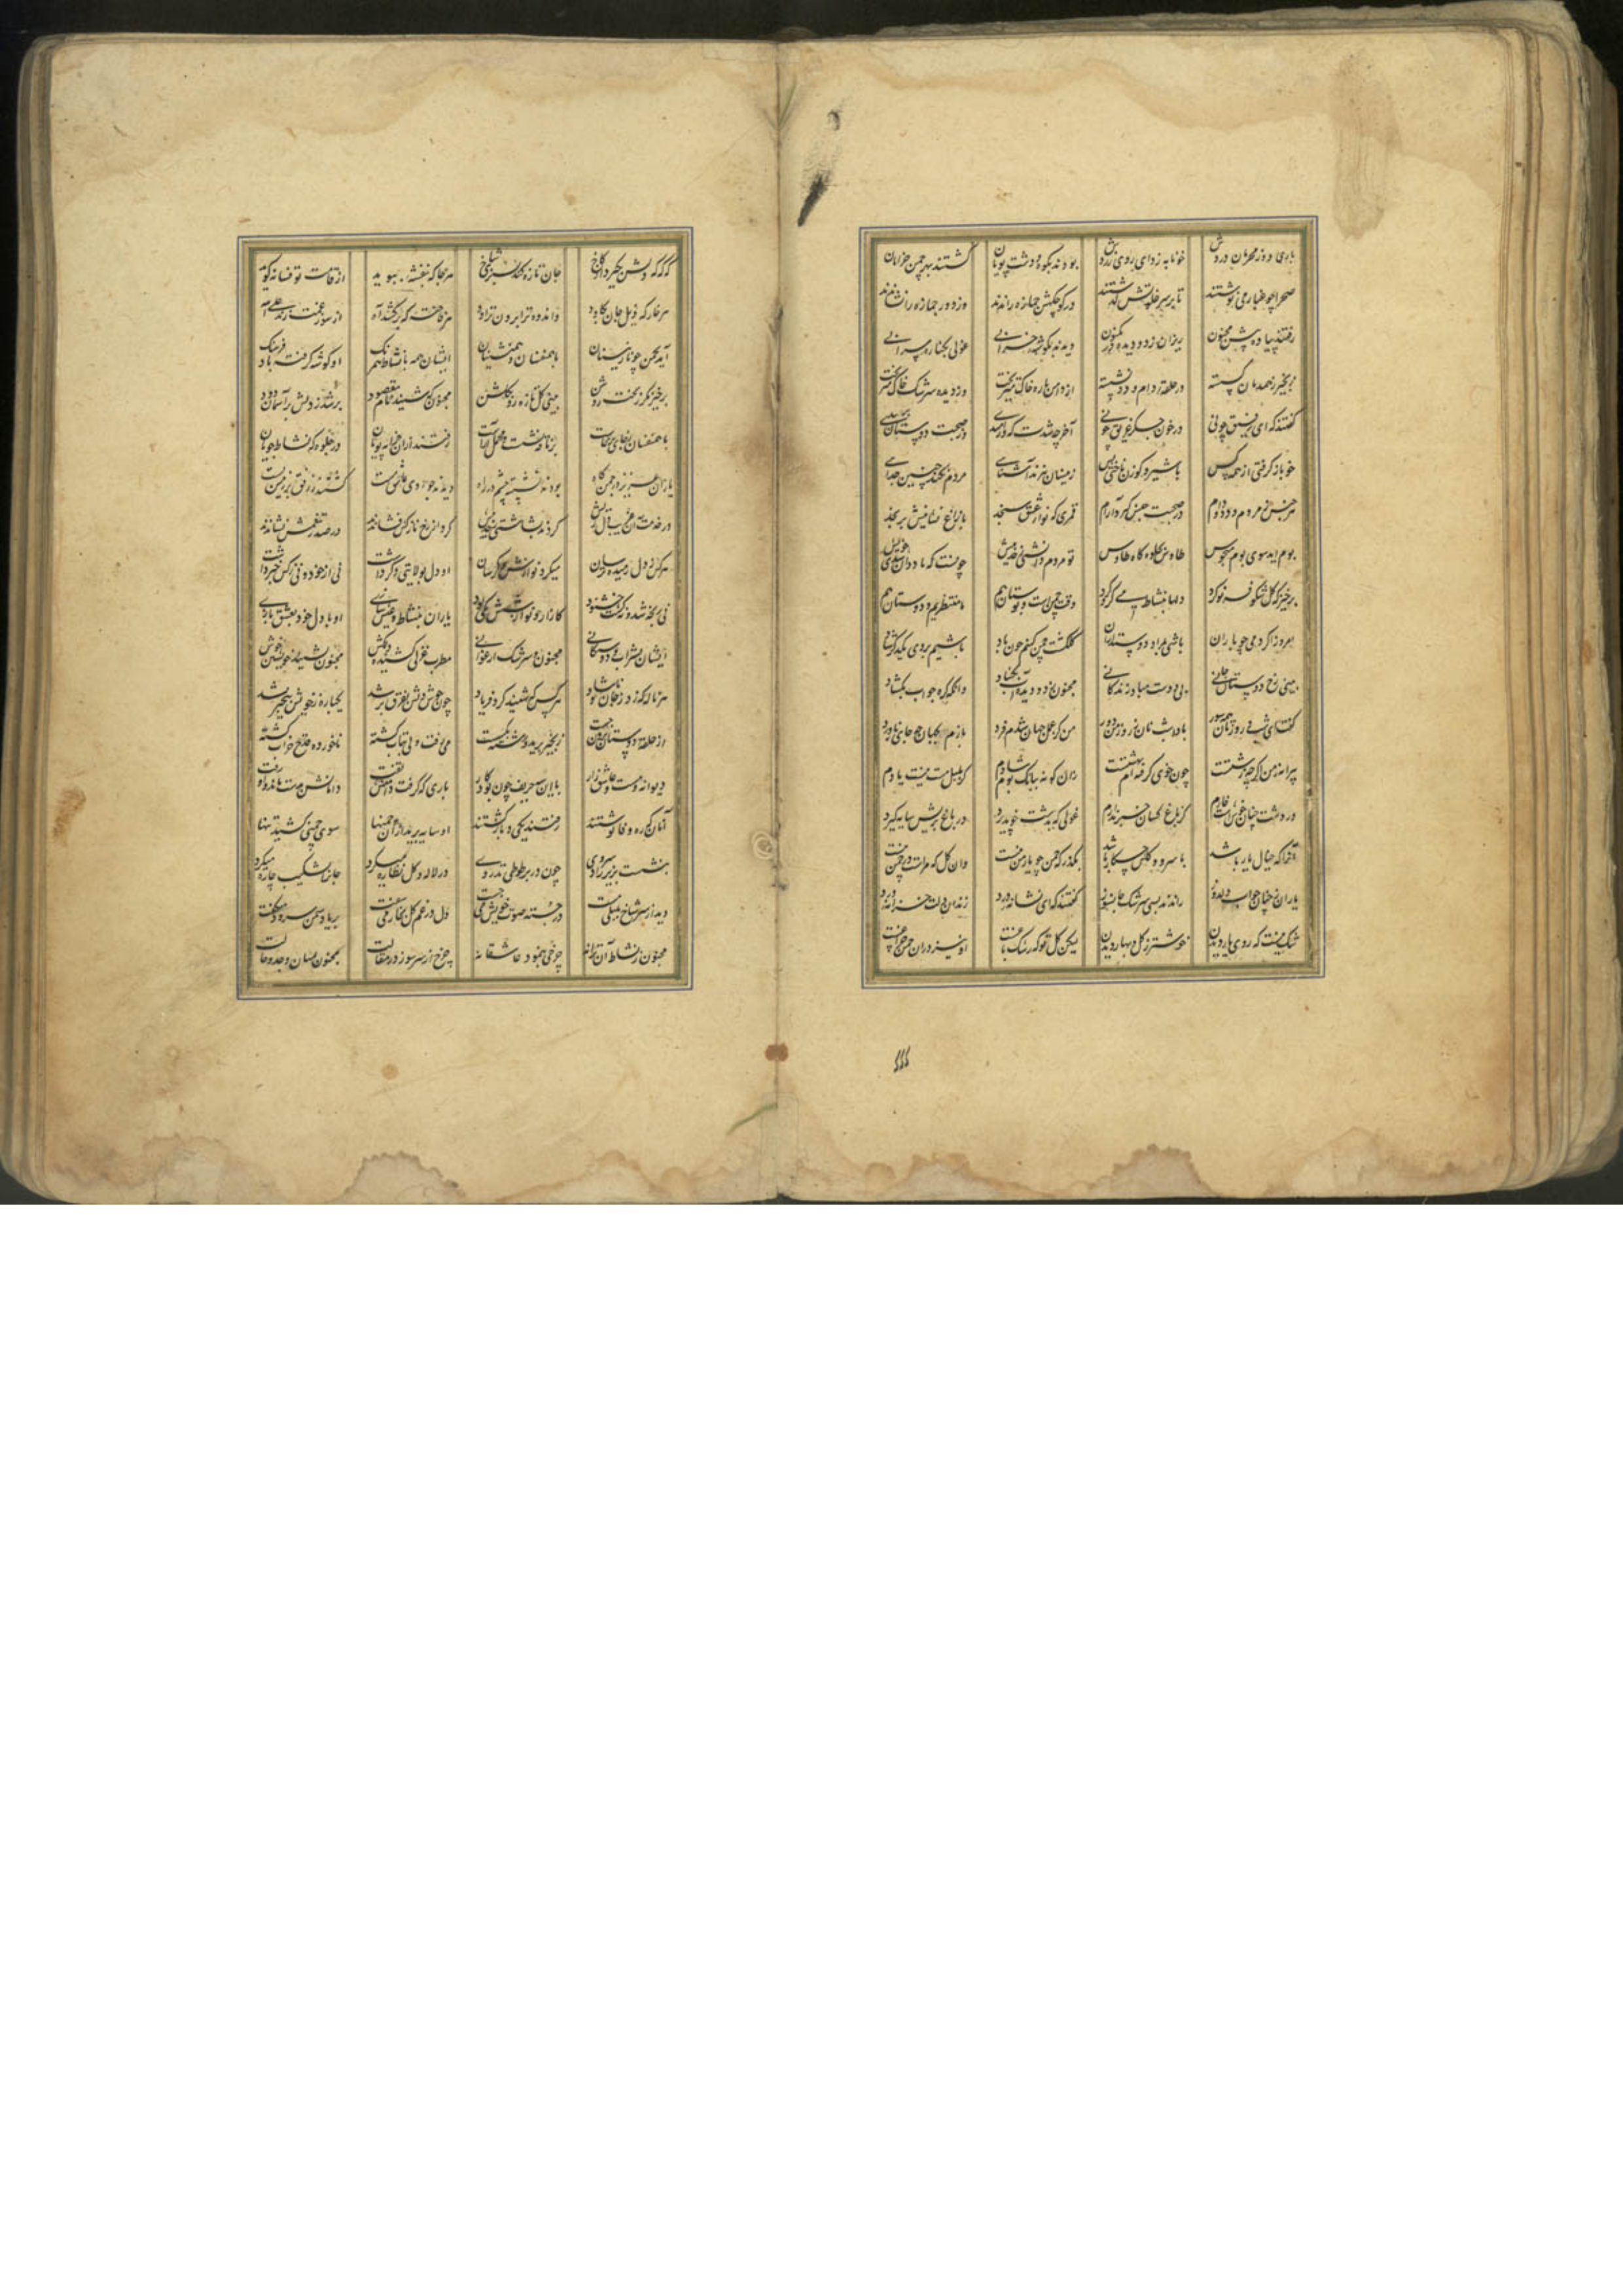 باری دو زمهربان دروش خونابه زدای روی زردش بودند بکوه و دشت پویان گشتند بهر چمن خرامان
صحرا چو غبار می نوشتند تا بر سر خلوتش گذشتند در کوچگهش جمازه راندند وز دور جمازه را نشاندند
رفتند پیاده پیش مجنون ریزان ز دو دیده در مکنون دیدند بگوشه خرابی غولی بکناره سرابی
زنجیر ز همدمان گسسته در حلقه دام و دد نشسته از دامن پاره خاک میریخت وز دیده سرشک خاک
گفتند که ای رفیق چونی در خون جگر غریق چونی آخر چه شدت که در صحبت دوستان
خو باز گرفتی از همه کس با شیر و گوزن ز مینسان نزند آشنایی مردم نکند چنین جدایی
هر جنس ز مردم و دد و دام در صحبت جنس گیرد آرام قمری که نوای عشق سنجد با زاغ نشانیش برنجد
بوم آید سوی بوم محبوس طاوس بجلوه گاه طاوس تو مردم و دانشی چونست که با ددان خویش
برخیز که گل شکوفه نو کرد دلها بنشاط می گرو کرد وقت چمن است و بوستان هم ما منتظریم و دوستان هم
امروز اگر دمی چو یاران باشی بمراد دوستداران گلگشت چمن کنیم چون باد باشیم بروی یکدگر شاد
بینی رخ دوستان جانی بی دوست مباد زندگانی مجنون ز دو دیده آب بگشاد وانگه گره جواب بگشاد
گفت ای شب و روزتان همه سور بادا شبتان ز روز من دور من کز همه جهان شدم فرد بازم بجهان چه جای ناورد
پیرامن من اگرچه زشتست چون خوی گرفته ام بهشتست زان گونه ببانگ بوم شادم کز بلبل مست نیست یادم
در دشت چنان خوش است خارم کز باغ کسان خبر ندارم غولی که بدشت خو پذیرد در باغ پریش سایه گیرد
آنجا که خیال یار باشد با سرو و گلش چکار باشد بگذر که چمن چو یار من نیست وان گل که مراست در چمن نیست
یاران ز چنان جواب دلدوز راندند بسی سرشک جانسوز گفتند که ای نشانه درد زندان دلت خزانه درد
شک نیست که روی یار دیدن خوشتر ز گل و بهار دیدن لیکن گل تو که رشک باغست او نیز در آن چمن چراغست
گه گه که دلش بگیرد از کاخ جان تازه کند بسبزی شاخ هر جا که بنفشه ببوید از قامت تو فسانه گوید
هر خار که ذیل جان کاود و اندوه ترا برون تراود هر فاخته که برکشد آه از سوز غمت
آید بچمن چو نازنینان با همنفسان و همنشینان ایشان همه با نشاط همرنگ او گوشه گرفته
برخیز مگر ز بخت روشن بینی گل تازه را بگلشن مجنون که شنید نام مقصود بر شد ز دلش بر آسمان دود
با همنفسان بجای برخاست بر ناقه نشست و محمل آراست رفتند از آن خرابه پویان در جلوه گه نشاط جویان
یاران عزیز در چمن گاه بودند نشسته چشم در راه دیدند چو روی عاشق مست گشتند ز رفق بر زمین پست
در خدمت آن غریب کردند بشاشتی گرد از رخ نازکش فشاندند در صدر تنعمش نشاندند
هر کس ز دل رمیده پرسان میکرد نوازش او دل بولایتی دگر داشت نی از خود و نی ز کس خبر داشت
نی پخته شد و نه گشت خشنود کازار و نوازشش یکی بود یاران بنشاط و عیش سازی او با دل خود بعشق بازی
ایشان بشراب دوستگانی مجنون و سرشک ارغوانی مطرب غزلی کشیده دلکش مجنون بنشید خویشتن خوش
هر ناله که زد ز جان ناشاد هر کس که شنید کرد فریاد چون جوش دلش بفرق بر شد یکباره ز خویش بیخبر شد
از حلقه دوستان برون جست زنجیر برید و رشته بگسست می رفت و بی تاب گشته ناخورده قدح خراب گشته
دیوانه و مست و عاشق زار با این سه حریف چون بود کار باری که گرفت دامنش تفت دامانش بدست ماند و او رفت
آنان که ره وفا نوشتند رفتند یکی دو باز گشتند او سایه برید از آن چمنها سوی چمنی کشید تنها
بنشست بزیر سروی آزاد چون در بر طوطیی تذروی در لاله و گل نظاره میکرد جان را بشکیب چاره میکرد
دید از سر شاخ بلبلی مست در جسته صوت خویش می جست دل در غم گل بخار میسفت بر یاد سمن سرود میگفت
مجنون ز نشاط آن ترانه چرخی بنمود عاشقانه چرخ از سر سوز در مقالت مجنون بمیان وجد و حالت